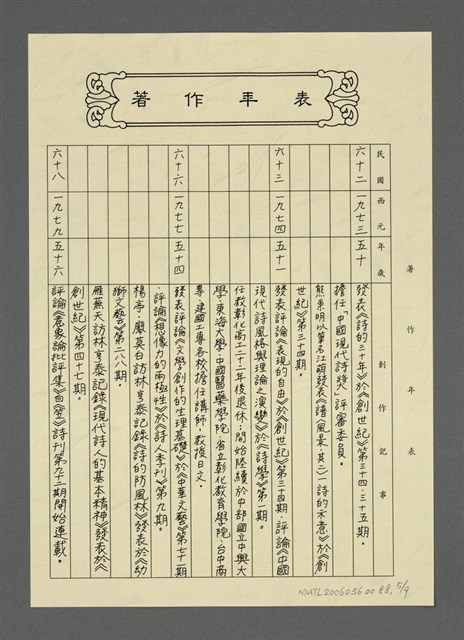 著作年表
著作年表
民國 西元 年歲 創作記事
六十二 一九七三 五十 發表《詩的三十年》於《創世紀》第三十四·三十五期。
擔任「中國現代詩獎」評審委員。
熊秉明以筆名江萌發表《譜〈風景(其二)〉一詩的不意》於《創
世紀》第三十四期。
六十三 一九七四 五十一 發表評論《表現的自由》於《創世紀》第三十四期·評論《中國
現代詩風格與理論之演變》於《詩學》第一期。
任教彰化高工二十二年後退休;開始陸續於中部國立中興大
學·東海大學·中國醫藥學院·省立彰化教育學院·台中商
專·建國工專各校擔任講師,教授日文。
六十六 一九七七 五十四 發表評論《文學創作的生理基礎》於《中華文藝》第七十一期
·評論《想像力的兩極性》於《詩人季刊》第九期。
楊亭·嚴莫白訪林亨泰記錄《詩的防風林》發表於《幼
獅文藝》第二八八期。
六十八 一九七九 五十六 雁蕪天訪林亨泰記錄《現代詩人的基本精神》發表於《
創世紀》第四十七期。
評論《意象論批評集》自《笠》詩刊第九十二期開始連載。
NMTL20060560088, 5/9